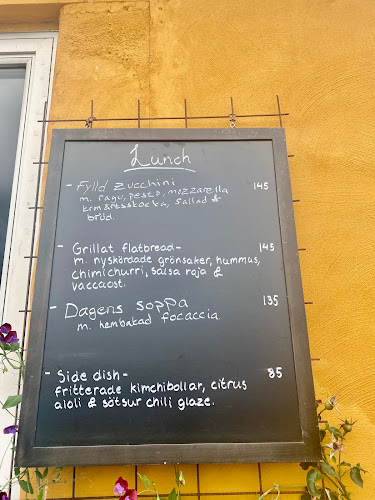 Lunch
- Fylld zucchini 145
m. ragu, pesto, mozzarella
kronärtskocka, sallad &
bröd.
- Grillat flatbread - 145
m. nyskördade grönsaker, hummus,
chimichurri, salsa roja &
vaccaost.
- Dagens soppa 135
m. hembakad focaccia
- Side dish - 85
fritterade kimchibollar, citrus
aioli & sötsur chili glaze.